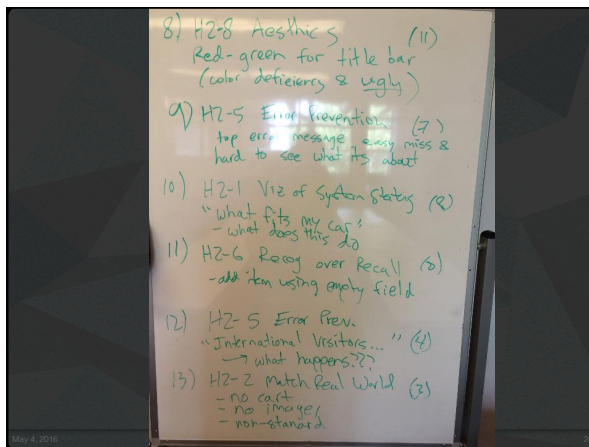 8) H2-8 Aesthics (11)
Red-green for title bar
(color deficiency & ugly)
9) H2-5 Error Prevention (7)
top error message easy miss &
hard to see what its about
10) H2-1 Viz of System Status (8)
"what fits my car"
- what does this do
11) H2-6 Recog over Recall (0)
- add item using empty field
12) H2-5 Error Prev.
"International Visitors..." (4)
→ what happens???
13) H2-2 Match Real World (3)
- no cart
- no images
- non-stanard
May 4, 2016